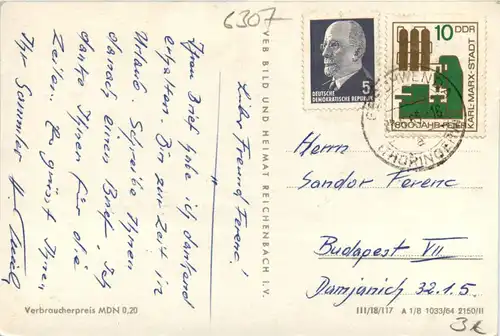 6307
Lieber Freund Ferenc!
Ihren Brief habe ich dankend
erhalten. Bin zur Zeit in
Urlaub. Schreibe Ihnen
danach einen Brief. Ich
danke Ihnen für die
Zeilen. Es grüsst Ihnen
Ihr Sammler
VEB BILD UND HEIMAT REICHENBACH I. V.
Verbraucherpreis MDN 0,20
5
DEUTSCHE
DEMOKRATISCHE REPUBLIK
10 DDR
KARL-MARX-STADT
800-JAHR-FEIER
(THÜRINGEN)
a
Herrn
Sandor Ferenc
Budapest VII
Damjanich 32. 1. 5.
III/18/117 A 1/B 1033/64 2150/II
3€